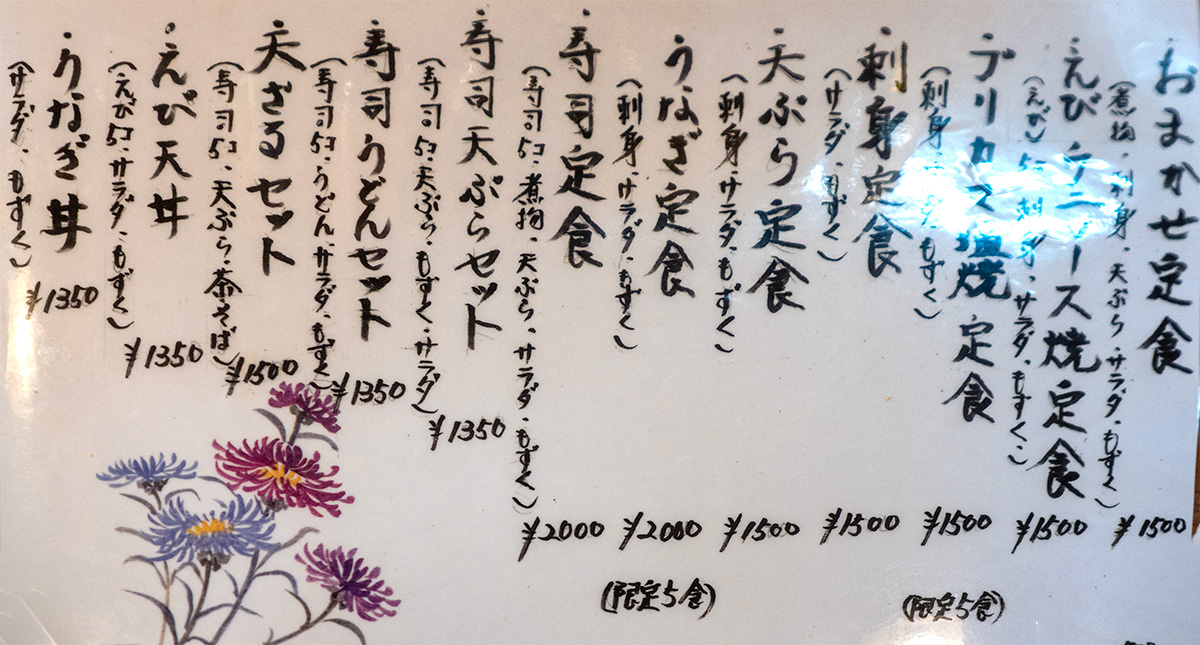 おまかせ定食
(煮物、刺身、天ぷら、サラダ、もずく)
¥1500
えび 焼定食
(えび5コ 刺身、サラダ、もずく)
¥1500
ブリカマ塩焼定食
(刺身、 もずく)
¥1500
(限定5食)
刺身定食
(サラダ、もずく)
¥1500
天ぷら定食
(刺身、サラダ、もずく)
¥1500
うなぎ定食
(刺身、サラダ、もずく)
¥2000
(限定5食)
寿司定食
(寿司5コ、煮物、天ぷら、サラダ、もずく)
¥2000
寿司天ぷらセット
(寿司5コ、天ぷら、もずく、サラダ)
¥1350
寿司うどんセット
(寿司5コ、うどん、サラダ、もずく)
¥1350
天ざるセット
(寿司5コ、天ぷら、茶そば)
¥1500
えび天丼
(えび5コ、サラダ、もずく)
¥1350
うなぎ丼
(サラダ、もずく)
¥1350